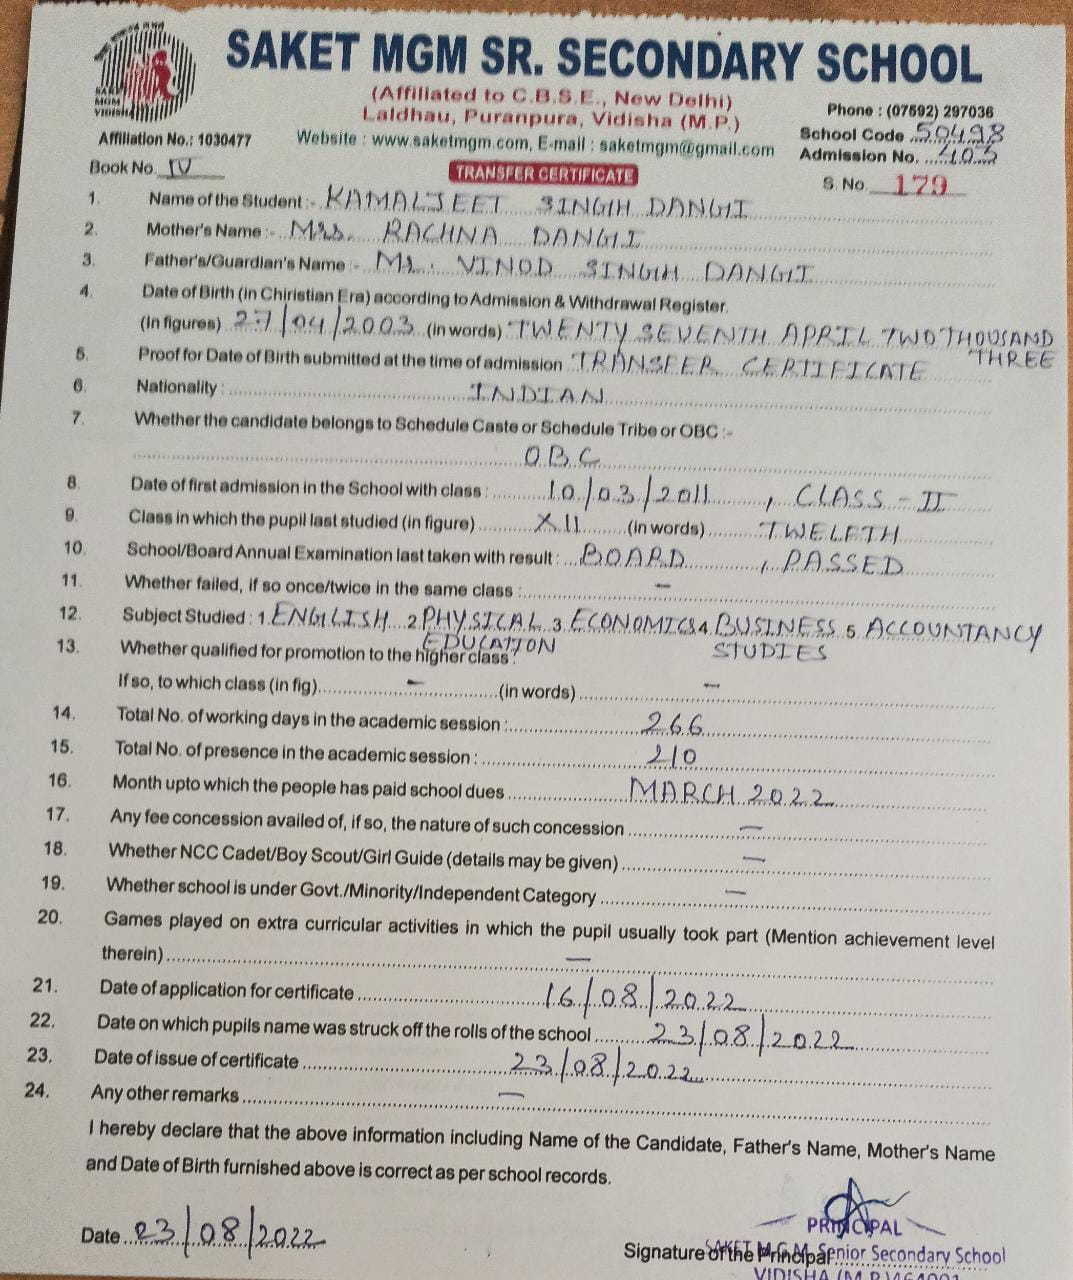 SAKET MGM SR. SECONDARY SCHOOL
(Affiliated to C.B.S.E., New Delhi)
Laldhau, Puranpura, Vidisha (M.P.)
Phone : (07592) 297036
MGM
VIDISHA
Affiliation No.: 1030477
Website : www.saketmgm.com, E-mail : saketmgm@gmail.com
School Code 50498
Admission No. 403
Book No. IV
TRANSFER CERTIFICATE
S. No. 179
1. Name of the Student :- KAMALJEET SINGH DANGI
2. Mother's Name :- Mrs. RACHNA DANGI
3. Father's/Guardian's Name :- Mr. VINOD SINGH DANGI
4. Date of Birth (in Chiristian Era) according to Admission & Withdrawal Register.
(In figures) 27/04/2003 (in words) TWENTY SEVENTH APRIL TWO THOUSAND THREE
5. Proof for Date of Birth submitted at the time of admission TRANSFER CERTIFICATE
6. Nationality : INDIAN
7. Whether the candidate belongs to Schedule Caste or Schedule Tribe or OBC :-
OBC
8. Date of first admission in the School with class : 10/03/2011, CLASS - II
9. Class in which the pupil last studied (in figure) XII (in words) TWELFTH
10. School/Board Annual Examination last taken with result : BOARD, PASSED
11. Whether failed, if so once/twice in the same class : -
12. Subject Studied : 1. ENGLISH 2. PHYSICAL EDUCATION 3. ECONOMICS 4. BUSINESS STUDIES 5. ACCOUNTANCY
13. Whether qualified for promotion to the higher class :
If so, to which class (in fig) - (in words) -
14. Total No. of working days in the academic session : 266
15. Total No. of presence in the academic session : 210
16. Month upto which the people has paid school dues MARCH 2022
17. Any fee concession availed of, if so, the nature of such concession -
18. Whether NCC Cadet/Boy Scout/Girl Guide (details may be given) -
19. Whether school is under Govt./Minority/Independent Category -
20. Games played on extra curricular activities in which the pupil usually took part (Mention achievement level
therein) -
21. Date of application for certificate 16/08/2022
22. Date on which pupils name was struck off the rolls of the school 23/08/2022
23. Date of issue of certificate 23/08/2022
24. Any other remarks -
I hereby declare that the above information including Name of the Candidate, Father's Name, Mother's Name
and Date of Birth furnished above is correct as per school records.
PRINCIPAL
Date 23/08/2022
Signature of the Principal
SAKET M.G.M. Senior Secondary School
VIDISHA (M.P.) 464001